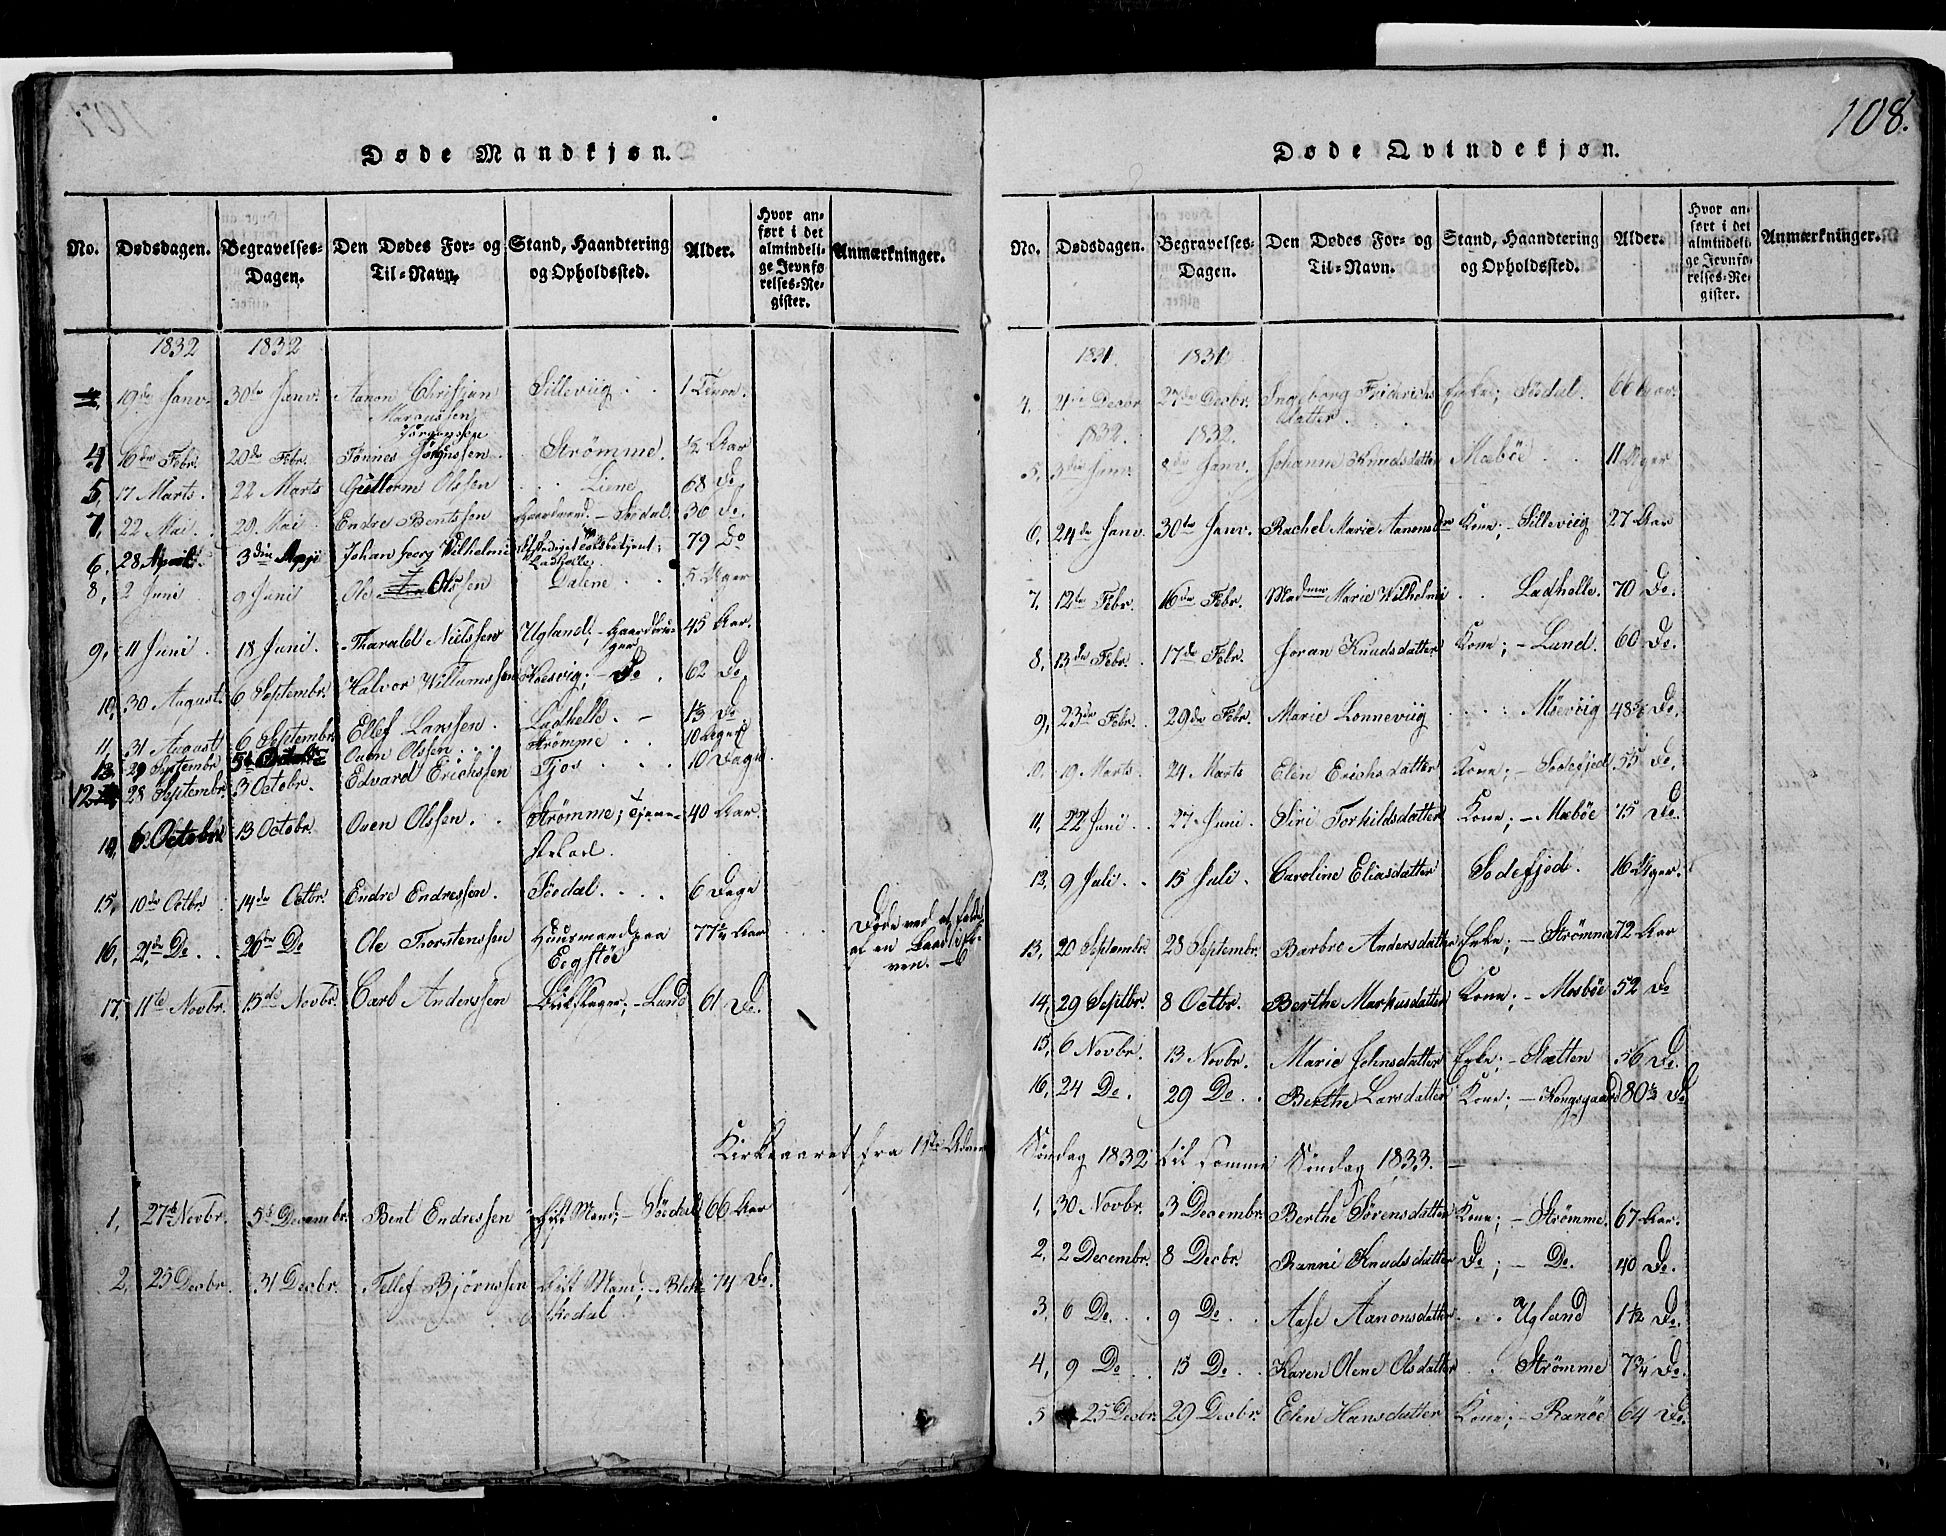 Døde Mandkjøn.
No. Dødsdagen. Begravelses-Dagen. Den Dødes For- og Til-Navn. Stand, Haandtering og Opholdssted. Alder. Hvor anført i det almindelige Jevnførelses-Register. Anmærkninger.
1832 1832
19de Janv. 30te Janv. Aanon Christian Silleviig 1
Marcussen
Jörgenssen
4, 16de Febr. 20de Febr. Tönnes Strømme. ½ Aar
5, 17 Marts. 22 Marts Guttorm Olssen Liene 68 Do.
7, 22 Mai. 29 Mai Endre Bentssen Gaardmand. – Söedal. 36 Do.
6, 28 April. 3die Johan Georg Wilhelmi Ladhølle. 79 Do
8, 2 Juni 9 Juni Ole Olssen Dalene 5 Uger
9, 11 Juni 18 Juni. Tharald Nielssen Ugland; – Gaardbruger; 45 Aar.
10, 30 August. 6 Septembr. Halvor Willumssen – Do. 62 Do.
11, 31 August 6 Septembr. Ellef Larssen. Ladhelle. – Do
13, 29 Septembr. Ouen Olssen Strømme 10 Uger
12 28 Septembr. 3 Octobr. Edvard Erichssen Tjos 10 Dage.
14, 6 Octobr. 13 Octobr. Ouen Olssen. Strømme; 40 Aar.
15, 10de Octbr. 14de Octbr. Endre Endressen. Söedal. 6 Dage
16, 21de Do. 26de Do Ole Thorstenssen Huusmand paa 77 Aar
Eegstöe
17, 11te Novbr. 15de Novbr. Carl Anderssen – Lund 61 Do.
Kirkeaaret fra 1ste Advent
1, 27de Novbr. 5te Decembr. Bent Endressen Gift Mand; – Söedal 66 Aar
2, 25 Decbr. 31 Decbr. Tellef Bjørnssen Gift Mand; – 74 Do.
108.
Døde Qvindekjøn.
No. Dødsdagen. Begravelses-Dagen. Den Dødes For- og Til-Navn. Stand, Haandtering og Opholdssted. Alder. Hvor anført i det almindelige Jevnførelses-Register. Anmærkninger.
1831. 1831
4, Decbr 27de Decbr. Ingeborg Fridrichs Enke; Södal. 66 Aar.
datter
1832. 1832.
5, 3die Janv. 8de Janv. Johanne Knudsdatter Mæbøe 11 Uger
6, 24de Janv. 30te Janv. Rachel Marie Aanonsdtr Kone; – Silleviig 27 Aar
7, 12te Febr. 16de Febr. Madame Marie Wilhelmi Ladhelle. 70 Do.
8, 13de Febr. 17de Febr. Joran Knudsdatter Kone; – Lund. 60 Do.
9, 23de Febr. 29de Febr. Marie Lonneviig 48 Do.
10, 19 Marts. 24 Marts Elen Erichsdatter Kone; – Sodefjed 55 Do.
11, 22 Juni. 27 Juni. Siri Torkildsdatter Kone; – Mæbøe 75 Do.
12, 9 Juli. 15 Juli. Caroline Eliasdatter Sodefjed. 16 Uger.
13, 20 Septembr. 28 Septembr. Barbro Andersdatter Enke; – Strømme 72 Aar
14, 29 Septbr. 8 Octbr. Berthe Markusdatter Kone; – Mosbøe 52 Do
15, 6 Novbr. 13 Novbr. Marie Johnsdatter Enke; – Slætten 56 Do.
16, 24 Do. 29 Do. Berthe Larsdatter Kone; – Kongsgaard 80½ Do
Søndag 1832 til samme Søndag 1833. –
1, 30 Novbr. 3 Decembr. Berthe Sørensdatter Kone; – Strømme. 67 Aar.
2, 2 Decembr. 8 Decbr. Ranni Knudsdatter Do; – Do. 40 Do.
3, 6 Do. 9 Do. Aase Aanonsdatter Ugland 1½ Do.
4, 9 Do 15 Do. Karen Olene Olsdatter Strømme 7¾ Do.
5 25 Decbr. 29 Decbr. Elen Hansdatter Kone; – Ranöe 64 Do.